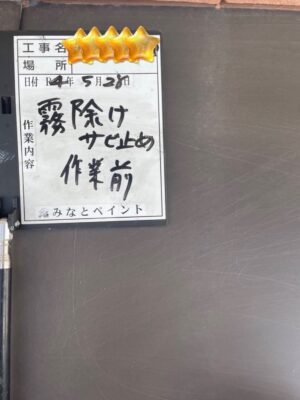 工事名
場所
日付 R4年5月28日
作業内容
霧除け
サビ止め
作業前
みなとペイント